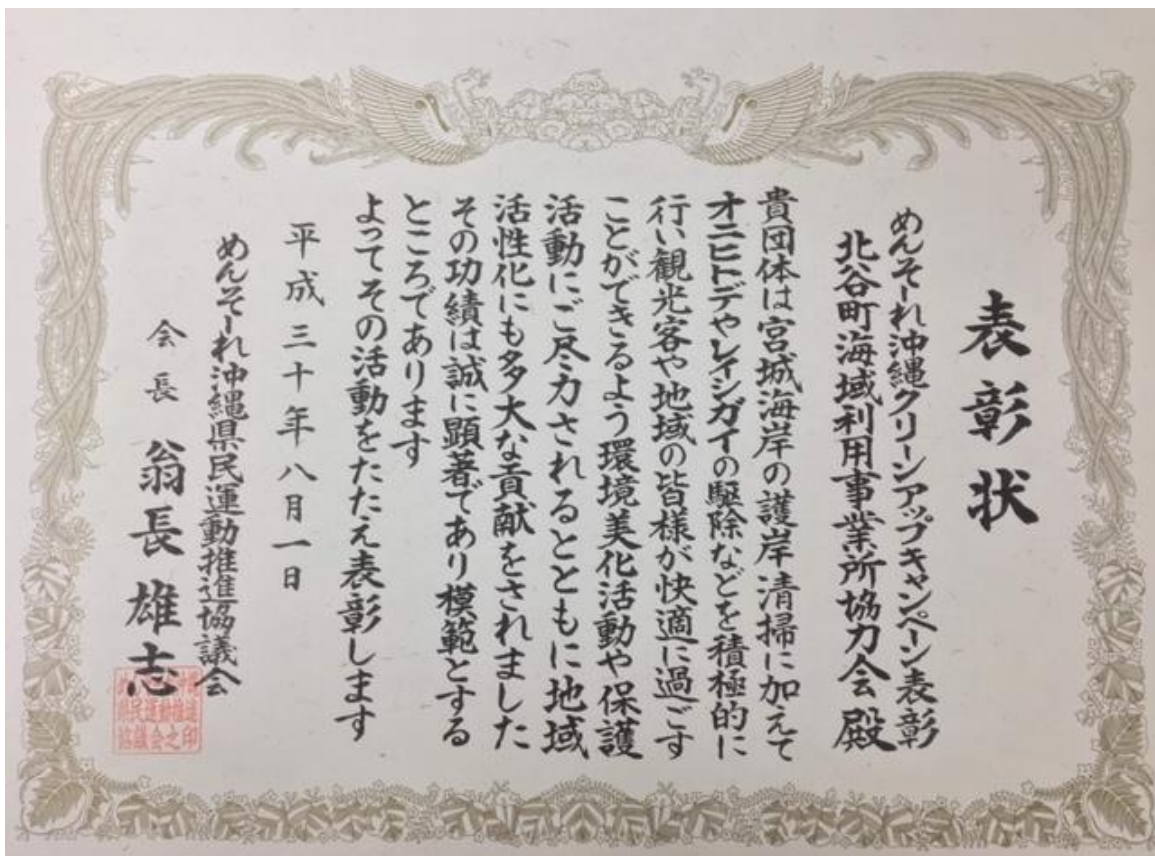 表彰状
めんそーれ沖縄クリーンアップキャンペーン表彰
北谷町海域利用事業所協力会殿
貴団体は宮城海岸の護岸清掃に加えて
オニヒトデやレイシガイの駆除などを積極的に
行い観光客や地域の皆様が快適に過ごす
ことができるよう環境美化活動や保護
活動にご尽力されるとともに地域
活性化にも多大な貢献をされました
その功績は誠に顕著であり模範とする
ところであります
よってその活動をたたえ表彰します
平成三十年八月一日
めんそーれ沖縄県民運動推進協議会
会長 翁長雄志